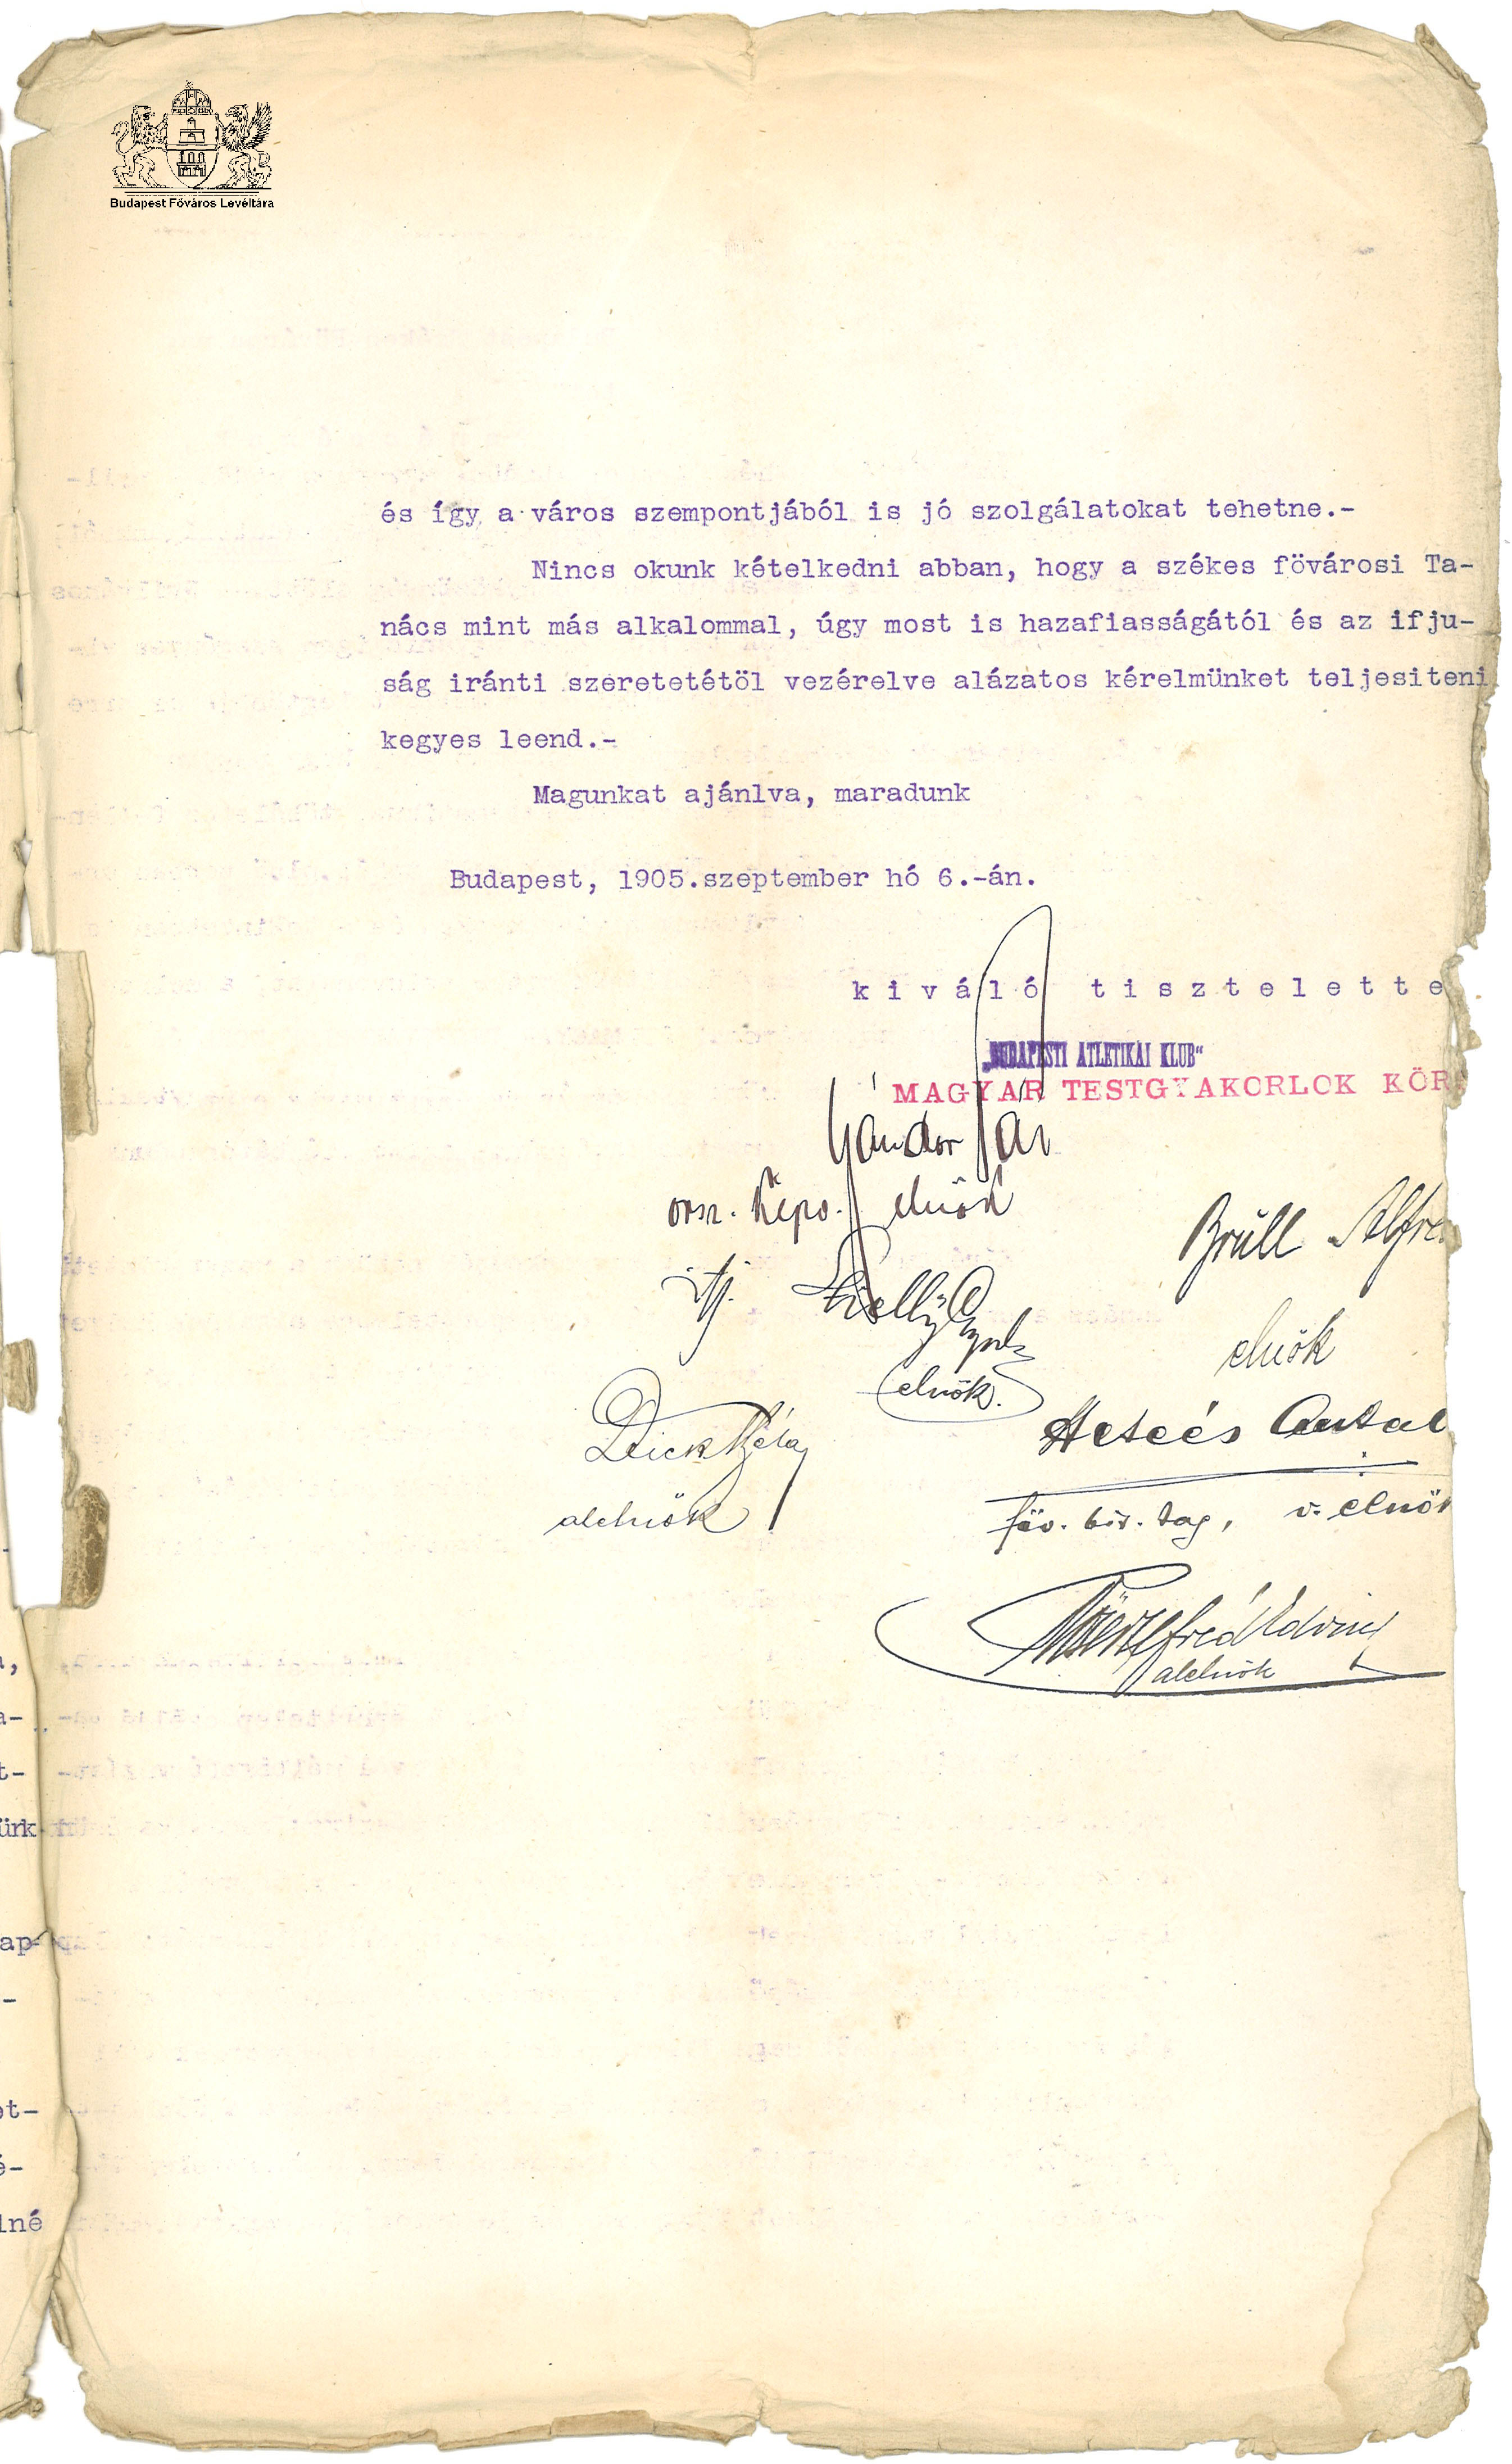 Budapest Főváros Levéltára
és így a város szempontjából is jó szolgálatokat tehetne.-
Nincs okunk kételkedni abban, hogy a székes fövárosi Ta-
nács mint más alkalommal, úgy most is hazafiasságától és az ifju-
ság iránti szeretetétöl vezérelve alázatos kérelmünket teljesiteni
kegyes leend.-
Magunkat ajánlva, maradunk
Budapest, 1905.szeptember hó 6.-án.
kiváló tisztelette
„BUDAPESTI ATLETIKAI KLUB“
MAGYAR TESTGYAKORLOK KÖR
Sándor Pál
orsz. képv. elnök
Brüll Alfré
ifj.
elnök
elnök.
Béla
Antal
alelnök
föv. biz. tag, v. elnök
alelnök
ürk
ap-
et-
é-
lné